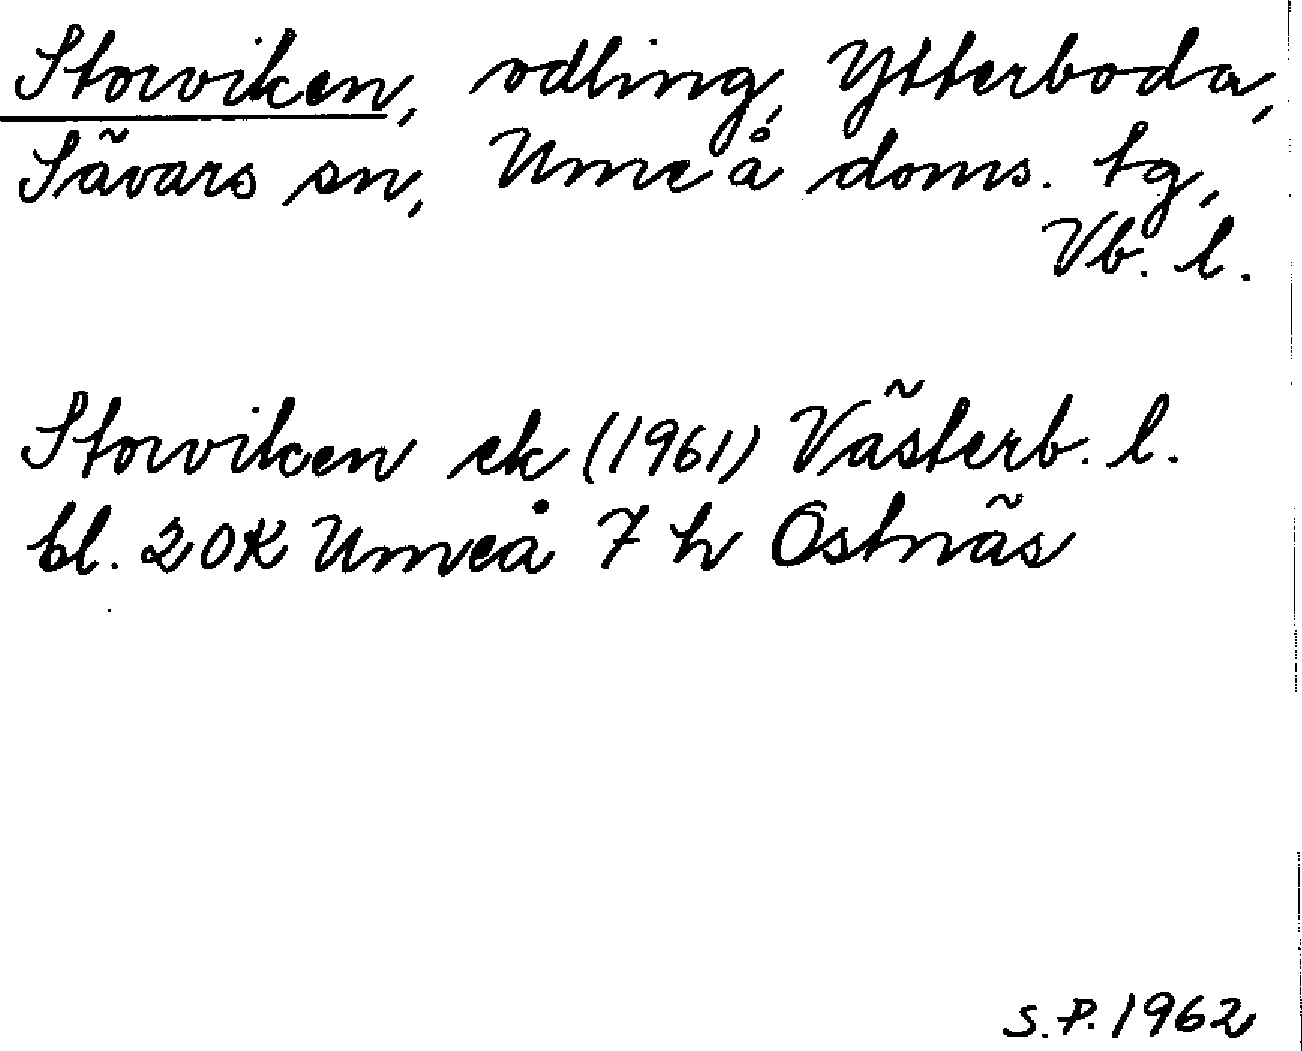 Storviken, odling, Ytterboda,
Sävars sn, Umeå doms. tg,
Vb. l.
Storviken ek (1961) Västerb. l.
bl. 20K Umeå 7 h Ostnäs
S.P. 1962